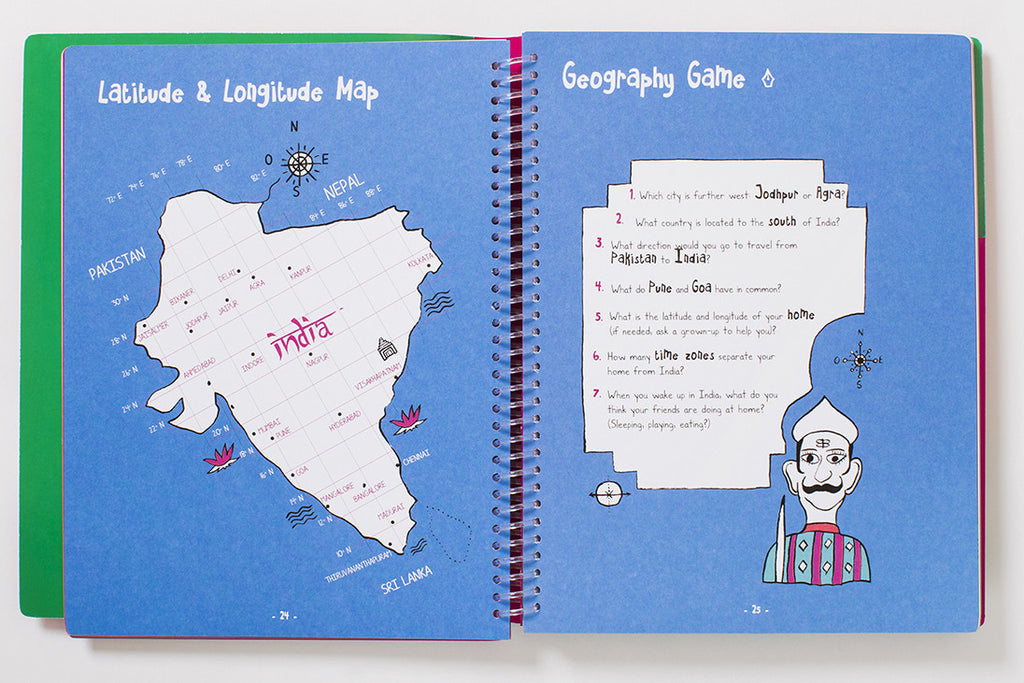 Latitude & Longitude Map
N
O E
S
72° E
74° E
76° E
78° E
80° E
82° E
84° E
86° E
88° E
NEPAL
PAKISTAN
30° N
28° N
26° N
24° N
22° N
20° N
18° N
16° N
14° N
12° N
10° N
DELHI
AGRA
KANPUR
KOLKATA
BIKANER
JAISALMER
JODHPUR
JAIPUR
india
AHMEDABAD
INDORE
NAGPUR
VISAKHAPATNAM
MUMBAI
PUNE
HYDERABAD
GOA
CHENNAI
MANGALORE
BANGALORE
MADURAI
THIRUVANANTHAPURAM
SRI LANKA
- 24 -
Geography Game
1. Which city is further west: Jodhpur or Agra?
2. What country is located to the south of India?
3. What direction would you go to travel from
Pakistan to India?
4. What do Pune and Goa have in common?
5. What is the latitude and longitude of your home
(if needed, ask a grown-up to help you)?
6. How many time zones separate your
home from India?
7. When you wake up in India, what do you
think your friends are doing at home?
(Sleeping, playing, eating?)
N
O E
S
- 25 -